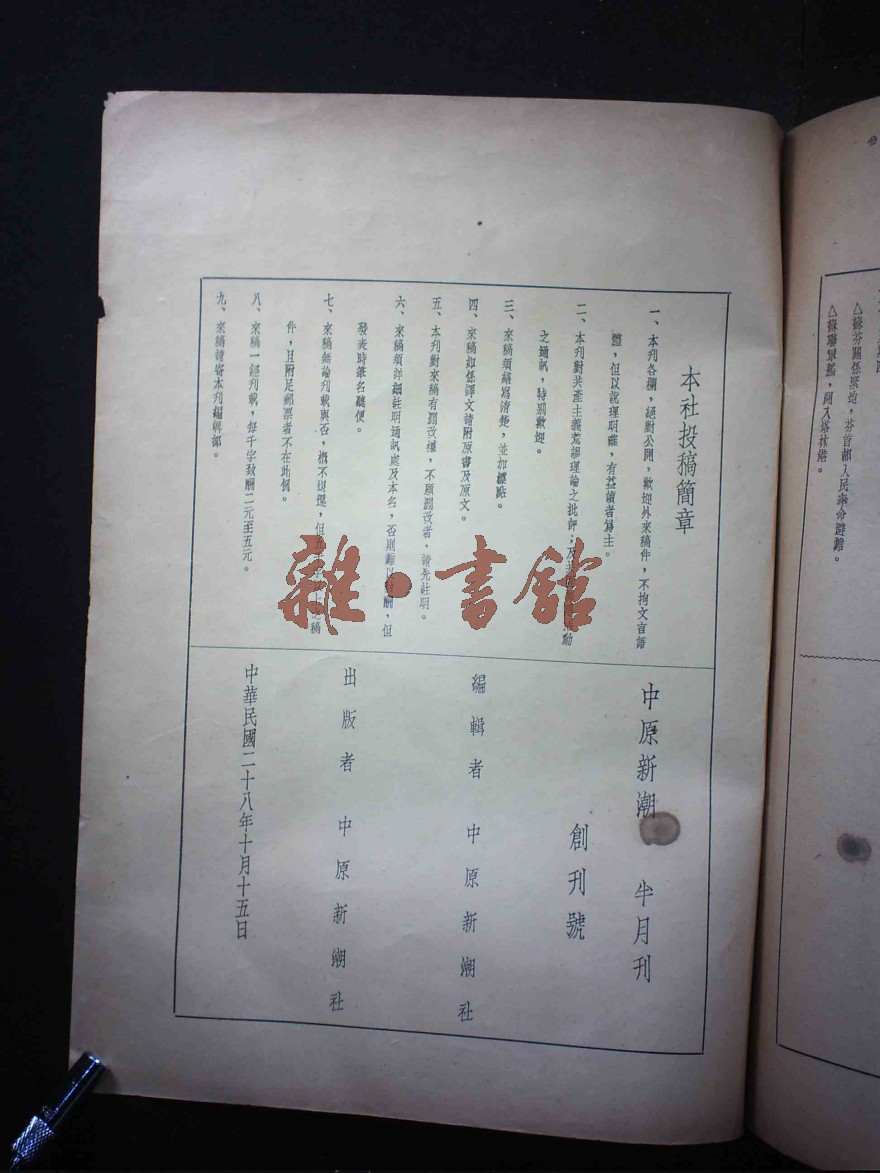 △蘇芬關係緊迫，芬首都人民奉命避難。
△蘇聯軍艦，開入塔林港。
本社投稿簡章
一、本刊各欄，絕對公開，歡迎外來稿件，不拘文言語
體，但以說理明雅，有益讀者爲主。
二、本刊對共產主義荒謬理論之批評；及
動
之通訊，特別歡迎。
三、來稿須繕寫清楚，並加標點。
四、來稿如係譯文請附原書及原文。
五、本刊對來稿有刪改權，不願刪改者，請先註明。
六、來稿須詳細註明通訊處及本名，否則難以 酬，但
發表時筆名聽便。
七、來稿無論刊載與否，概不退還，但五 稿
件，且附足郵票者不在此例。
八、來稿一經刊載，每千字致酬二元至五元。
九、來稿請寄本刊編輯部。
中原新潮 半月刊
創刊號
編輯者 中原新潮社
出版者 中原新潮社
中華民國二十八年十月十五日
雜·書館